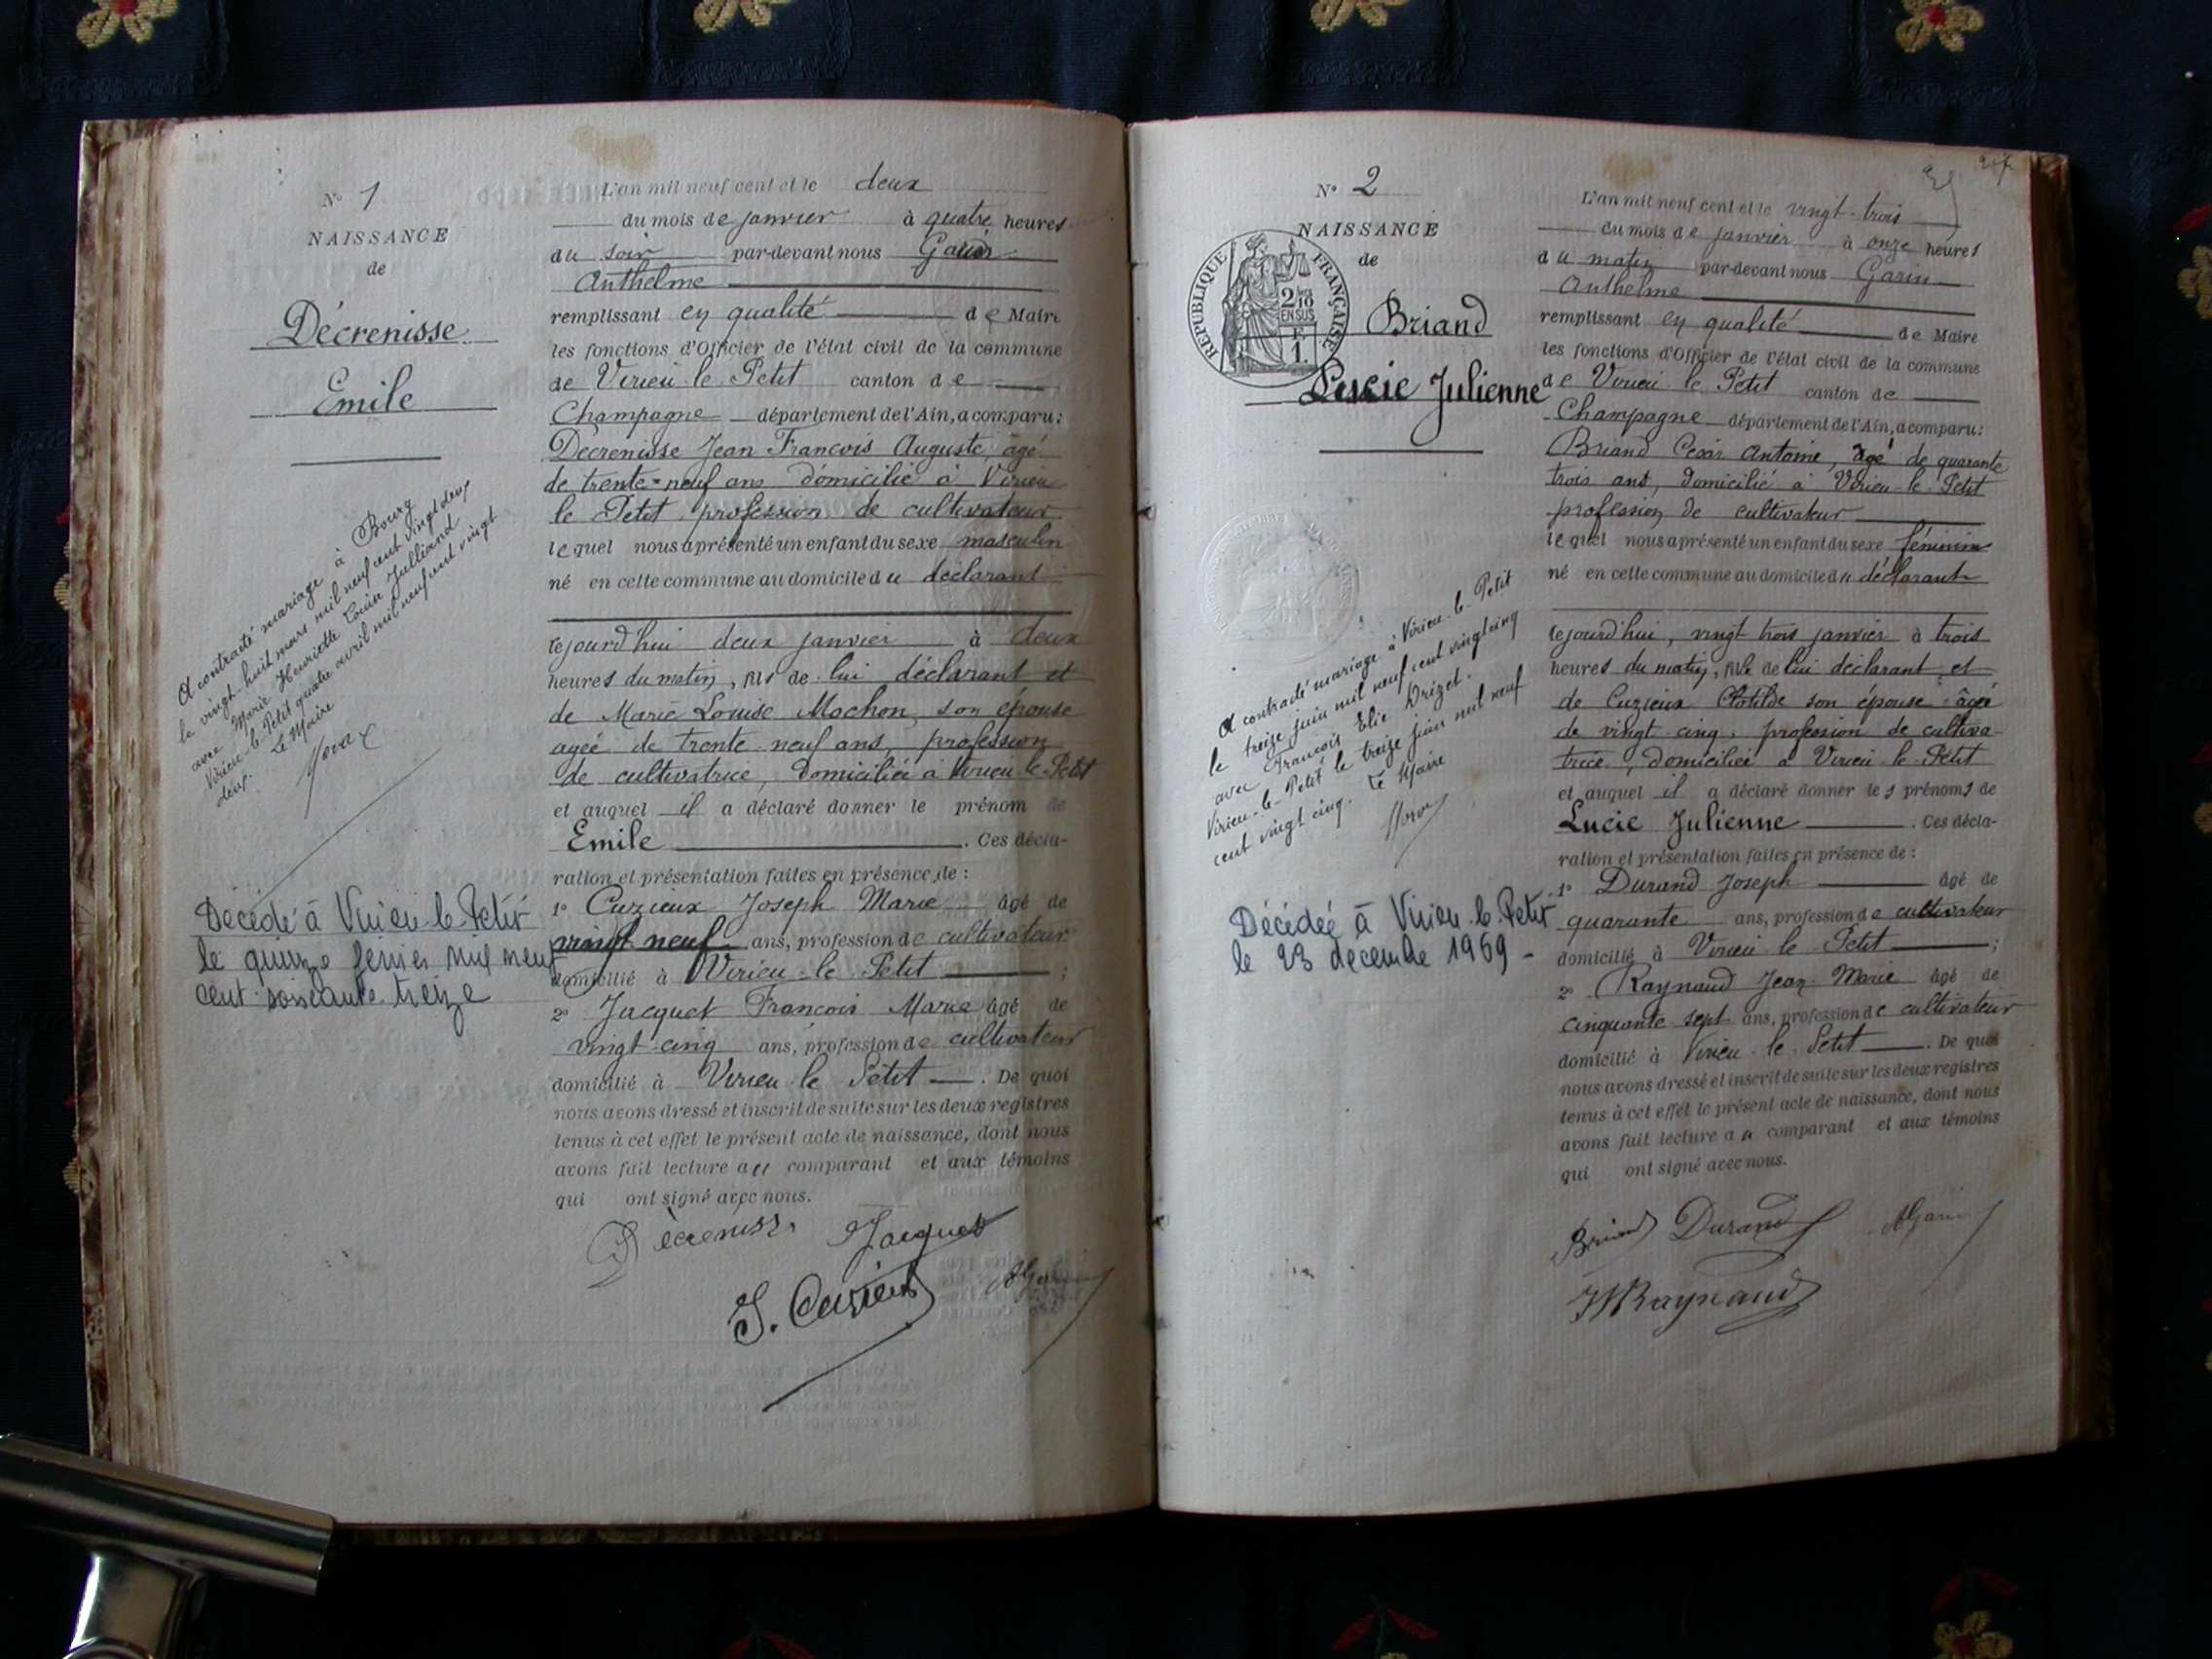 N° 1
NAISSANCE
de
Décrenisse
Emile
A contracté mariage à Bourg
le vingt-huit mars mil neuf cent vingt deux
avec Marie Henriette Julliand
Virieu-le-Petit quatre avril mil neuf cent vingt
deux.
Le Maire
Décédé à Virieu-le-Petit
le quinze février mil neuf
cent soixante treize
L'an mil neuf cent et le deux
du mois de janvier à quatre heures
du soir par-devant nous Garin
Anthelme
remplissant en qualité de Maire
les fonctions d'Officier de l'état civil de la commune
de Virieu-le-Petit canton de
Champagne département de l'Ain, a comparu:
Décrenisse Jean François Auguste, âgé
de trente-neuf ans domicilié à Virieu
le Petit, profession de cultivateur
lequel nous a présenté un enfant du sexe masculin
né en cette commune au domicile du déclarant
cejourd'hui deux janvier à deux
heures du matin, fils de lui déclarant et
de Marie Louise Mochon, son épouse
agée de trente neuf ans, profession
de cultivatrice, domiciliée à Virieu le-Petit
et auquel il a déclaré donner le prénom de
Emile. Ces décla-
ration et présentation faites en présence de :
1° Cuzieux Joseph Marie âgé de
vingt neuf ans, profession de cultivateur
domicilié à Virieu-le Petit ;
2° Jacquet François Marie âgé de
vingt-cinq ans, profession de cultivateur
domicilié à Virieu-le Petit. De quoi
nous avons dressé et inscrit de suite sur les deux registres
tenus à cet effet le présent acte de naissance, dont nous
avons fait lecture au comparant et aux témoins
qui ont signé avec nous.
Décrenisse Jacquet
J. Cuzieux AGarin
N° 2
NAISSANCE
de
REPUBLIQUE FRANÇAISE
2/10
EN SUS
F.
1.
Briand
Lucie Julienne
A contracté mariage à Virieu-le-Petit
le treize juin mil neuf cent vingt cinq
avec François Elie Drizet.
Virieu-le-Petit le treize juin mil neuf
cent vingt cinq. Le Maire
Décédée à Virieu-le-Petit
le 23 decembre 1969 -
27
L'an mil neuf cent et le vingt-trois
du mois de janvier à onze heures
du matin par-devant nous Garin
Anthelme
remplissant en qualité de Maire
les fonctions d'Officier de l'état civil de la commune
de Virieu-le Petit canton de
Champagne département de l'Ain, a comparu:
Briand César Antoine, âgé de quarante
trois ans, domicilié à Virieu-le-Petit
profession de cultivateur
lequel nous a présenté un enfant du sexe féminin
né en cette commune au domicile du déclarant
cejourd'hui, vingt trois janvier à trois
heures du matin, fille de lui déclarant et
de Cuzieux Clotilde son épouse âgée
de vingt-cinq, profession de cultiva-
trice, domiciliée à Virieu-le-Petit
et auquel il a déclaré donner les prénoms de
Lucie Julienne. Ces décla-
ration et présentation faites en présence de :
1° Durand Joseph âgé de
quarante ans, profession de cultivateur
domicilié à Virieu le Petit ;
2° Raynaud Jean-Marie âgé de
cinquante sept ans, profession de cultivateur
domicilié à Virieu-le-Petit. De quoi
nous avons dressé et inscrit de suite sur les deux registres
tenus à cet effet le présent acte de naissance, dont nous
avons fait lecture au comparant et aux témoins
qui ont signé avec nous.
Briand Durand AGarin
JMRaynaud